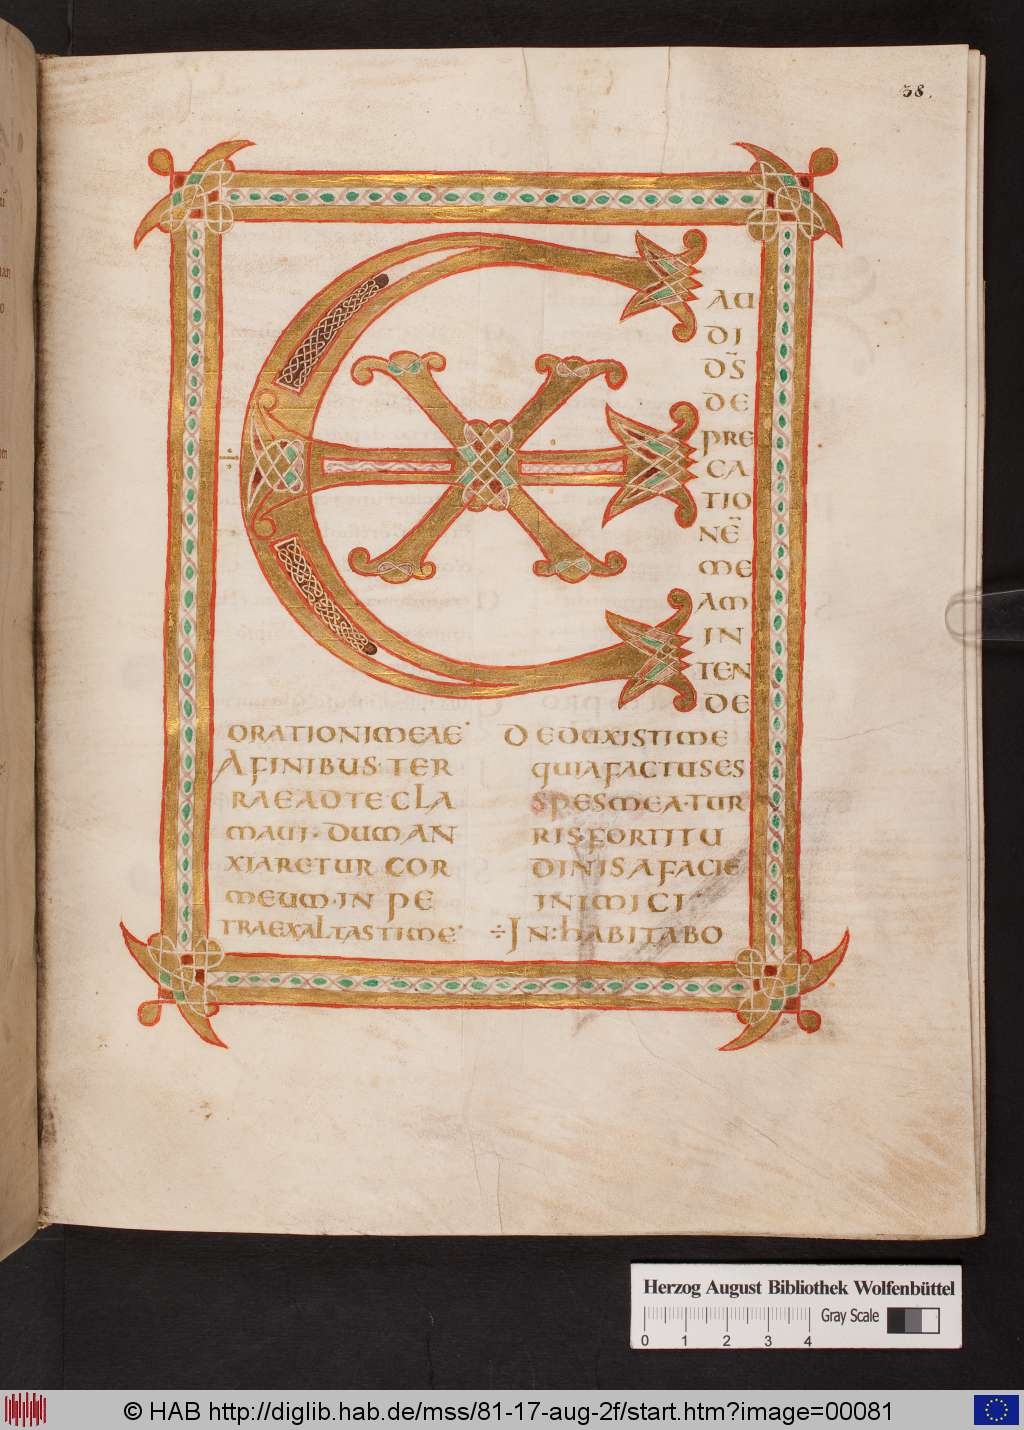 38.
E
AU
DI
DS̄
DE
PRE
CA
TIO
NĒ
ME
AM
IN
TEN
DE
ORATIONI MEAE·
A FINIBUS: TER
RAE AD TE CLA
MAUI· DUM AN
XIARETUR COR
MEUM· IN PE
TRA EXALTASTI ME·
DEDUXISTI ME
QUIA FACTUS ES
SPES MEA· TUR
RIS· FORTITU
DINIS A FACIE
INIMICI·
÷ IN: HABITABO
Herzog August Bibliothek Wolfenbüttel
Gray Scale
0 1 2 3 4
© HAB http://diglib.hab.de/mss/81-17-aug-2f/start.htm?image=00081